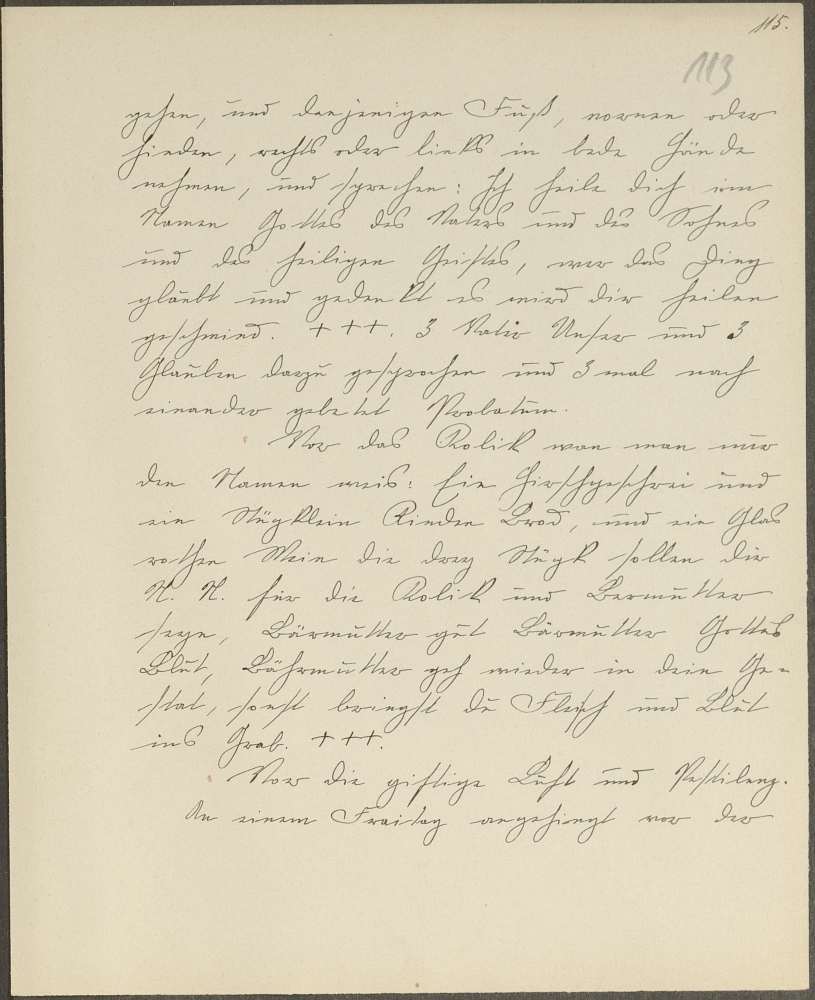 115.
113
gehen, und denjenigen Fuß, vornen oder
hinden, rechts oder links in bede Hände
nehmen, und sprechen: Ich heile dich im
Namen Gottes des Vaters und des Sohnes
und des heiligen Geistes, wer das Ding
glaubt und gedenkt es wird dir heilen
geschwind. +++. 3 Vatir Unser und 3
Glauben dazu gesprochen und 3 mal nach
einander gebetet Probatum.
Vor das Kolik wan man nur
den Namen weis: Ein Hirschgeschrei und
ein Stügklein Rinden Brod, und ein Glas
rothen Wein die drey Stügk sollen dir
N. N. für die Kolik und Bermutter
seyn, Bärmutter gut Bärmutter Gottes
Blut, Bährmutter geh wieder in dein Ge-
stat, sonst bringst du Fleisch und Blut
ins Grab. +++.
Vor die giftige Luft und Pestilenz.
An einem Freitag angehengt vor der